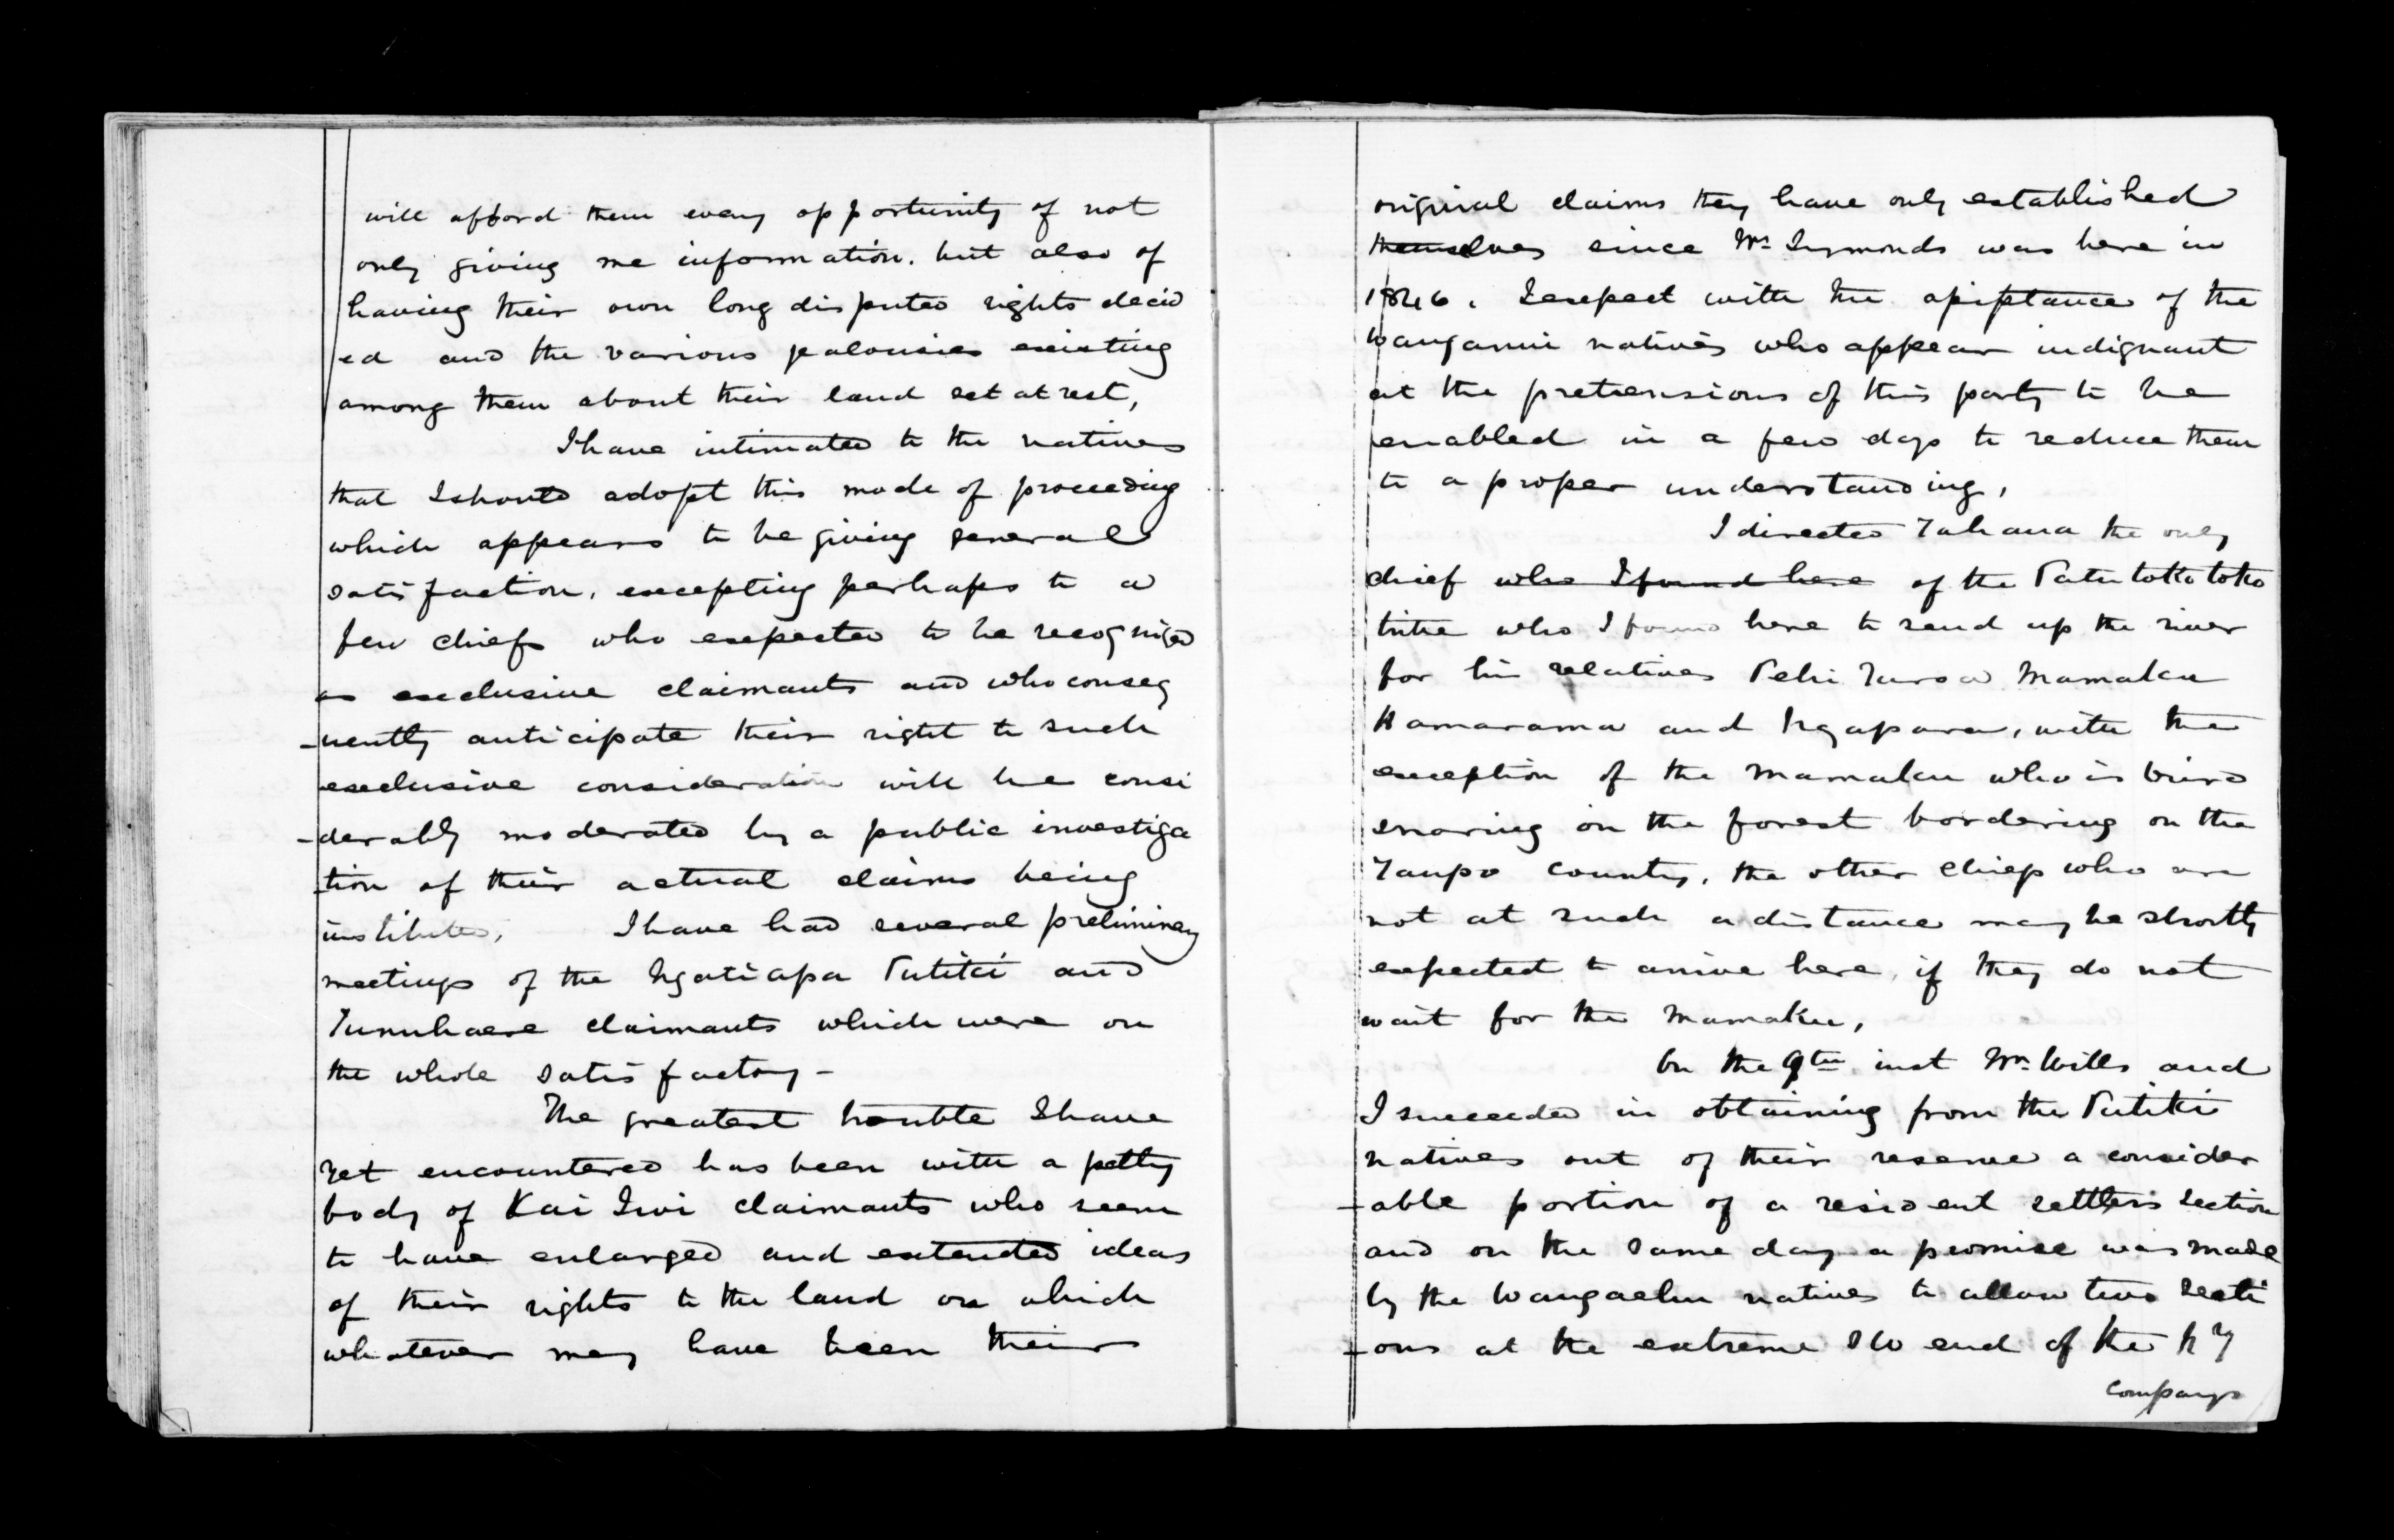 will afford them every opportunity of not
only giving me information. but also of
having their own long disputed rights decid
ed and the various jealousies existing
among them about their land set at rest,
I have intimated to the natives
that I should adopt this mode of proceeding
which appears to be giving general
satisfaction, excepting perhaps to a
few chiefs who expected to be recognized
as exclusive claimants and who conseq
-uently anticipate their right to such
exclusive consideration will be consi
-derably moderated by a public investiga
tion of their actual claims being
instituted, I have had several preliminary
meetings of the Ngatiapa Putiki and
Tunuhaere claimants which were on
the whole satisfactory -
The greatest trouble I have
yet encountered has been with a petty
body of Kai Iwi claimants who seem
to have enlarged and extended ideas
of their rights to the land on which
whatever may have been their
original claims they have only established
themselves since Mr Symonds was here in
1846. I expect with the assistance of the
Wanganui natives who appear indignant
at the pretensions of this party to be
enabled in a few days to reduce them
to a proper understanding,
I directed Tahana the only
chief who I found here of the Patutokotoko
tribe who I found here to send up the river
for his relatives Pehi Turoa Mamaku
Hamarama and Ngapara, with the
exception of the Mamaku who is bird
snaring in the forest bordering on the
Taupo country, the other chiefs who are
not at such a distance may be shortly
expected to arrive here, if they do not
wait for the Mamaku,
On the 9th inst Mr Wills and
I succeeded in obtaining from the Putiki
natives out of their reserve a consider
-able portion of a resident settlers section
and on the same day a promise was made
by the Wangaehu natives to allow two secti
-ons at the extreme S W end of the N Z
Companys